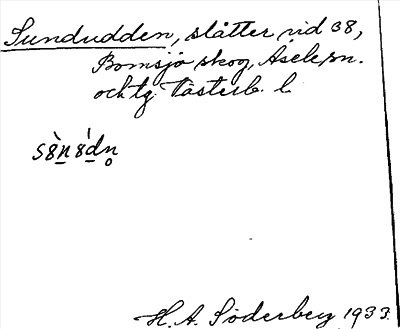 Sundudden, slåtter vid 38,
Bomsjö skog, Åsele sn.
och tg. Västerb. l.
s8̀n̲8́d̲n̥
H. A. Söderberg 1933.